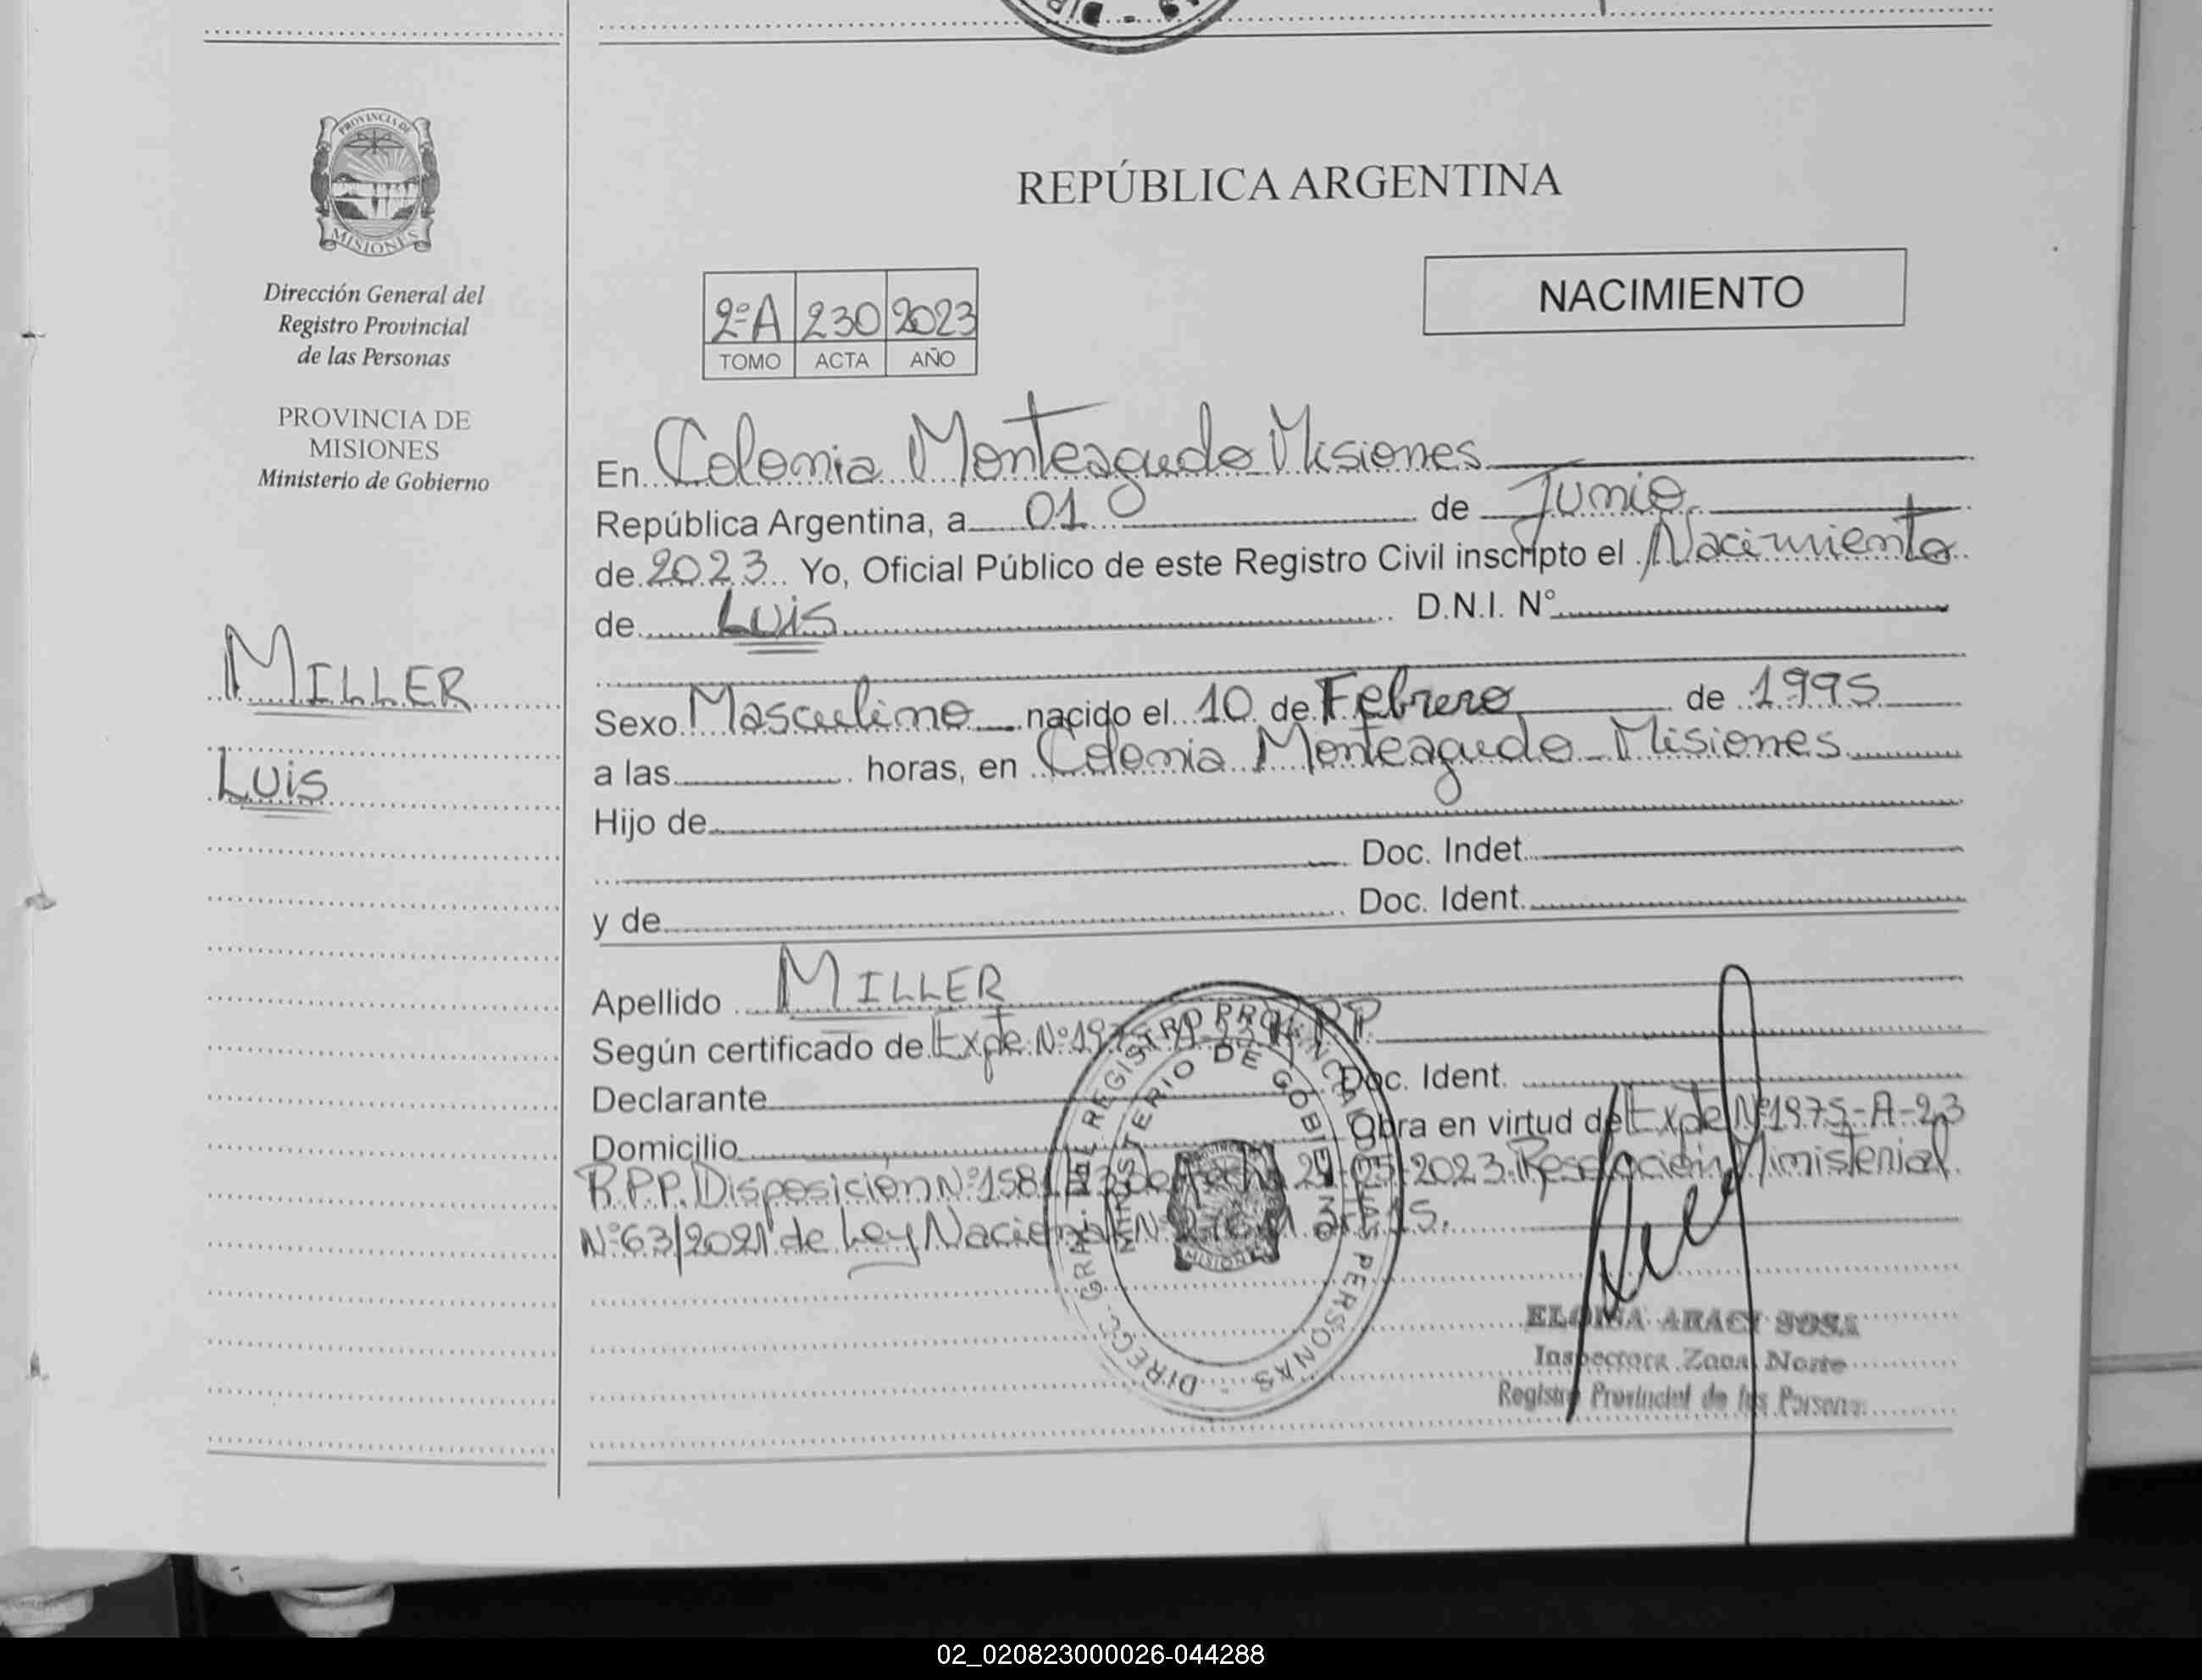 PROVINCIA DE
MISIONES
Dirección General del
Registro Provincial
de las Personas
PROVINCIA DE
MISIONES
Ministerio de Gobierno
MILLER
Luis
REPÚBLICA ARGENTINA
NACIMIENTO
2ºA 230 2023
TOMO ACTA AÑO
En Colonia Monteagudo Misiones
República Argentina, a 01 de Junio
de 2023 Yo, Oficial Público de este Registro Civil inscripto el Nacimiento
de Luis D.N.I. N°
Sexo Masculino nacido el 10 de Febrero de 1995
a las horas, en Colonia Monteagudo - Misiones
Hijo de
Doc. Indet.
y de Doc. Ident.
Apellido MILLER
Según certificado de Expte Nº
Declarante Doc. Ident.
Domicilio Obra en virtud de Expte Nº1975-A-23
R.P.P. Disposición Nº 2023 Resolución Ministerial
Nº63/2021 de Ley Nacional
DIRECC. GRAL. DEL REGISTRO PROVINCIAL DE LAS PERSONAS
MINISTERIO DE GOBIERNO
MISIONES
ARACI SOSA
Inspectora Zona Norte
Registro Provincial de las Personas
02_020823000026-044288